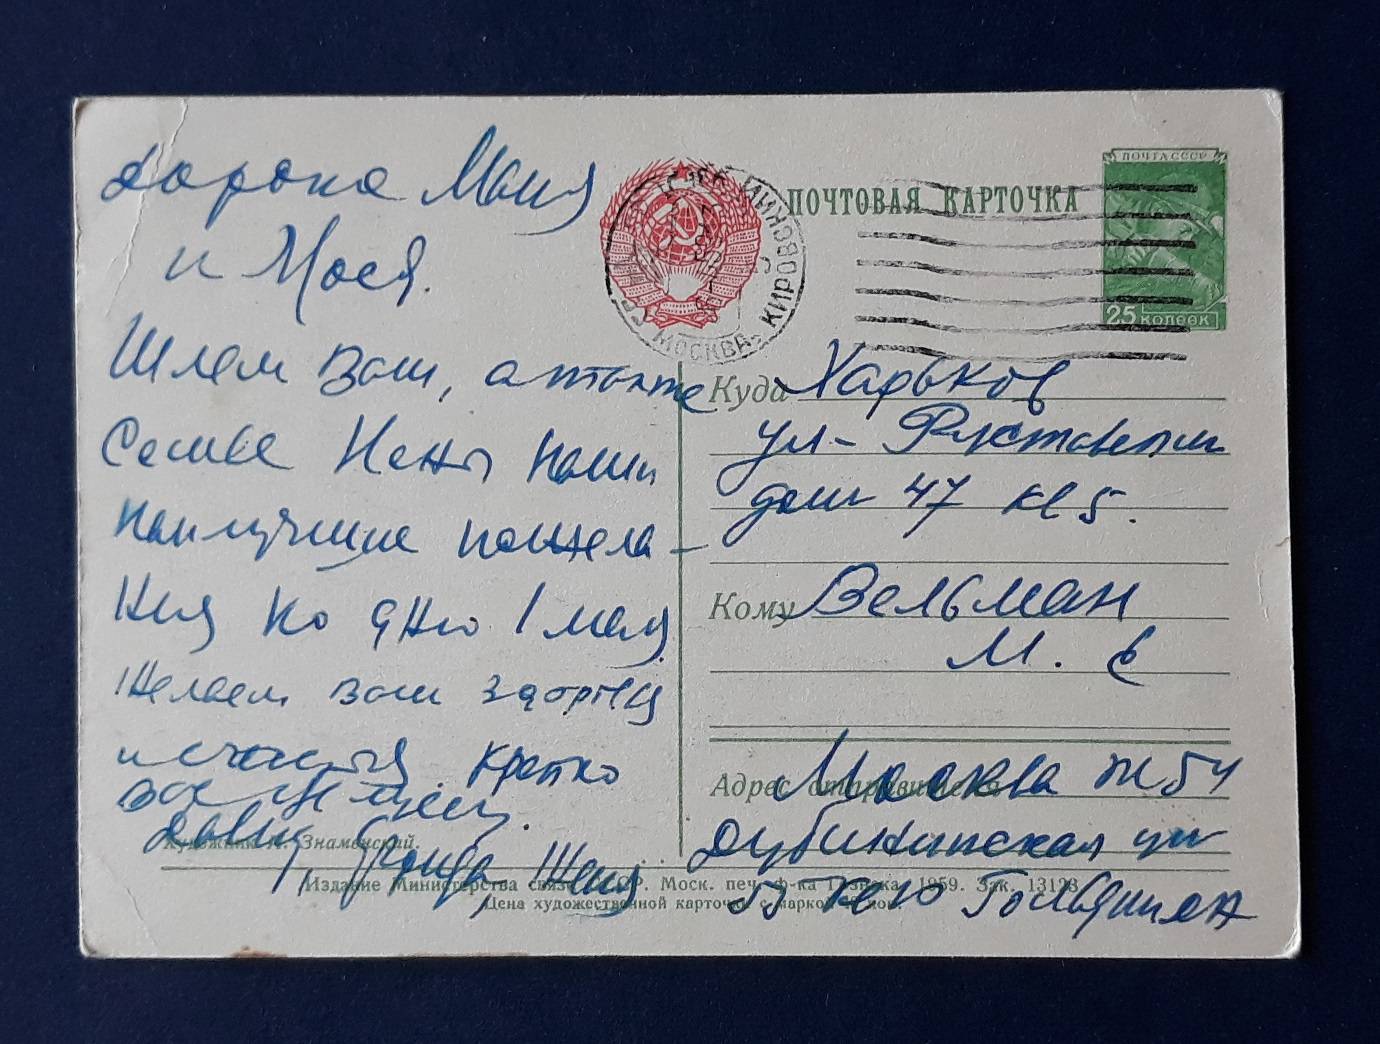 дорокие Маня
и Мося.
Шлем вам, а также
Семье Нены наши
наилучшие пожела-
ния ко дню 1 мая
Желаем вам здоровья
и счастья. Крепко
вас целуем.
Давид, Фаня, Женя
ПОЧТОВАЯ КАРТОЧКА
ПОЧТА СССР
25 КОПЕЕК
МОСКВА, КИРОВСКИЙ
Куда Харьков
ул- Руставели
дом 47 кв 5.
Кому Вельман
М. Е
Адрес отправителя: Москва Ж 54
Дубининская ул
Гольдман
Художник Знаменский.
Издание Министерства связи СССР. Моск. печ. ф-ка Гознака. 1959. Зак. 13123
Цена художественной карточки с маркой коп.